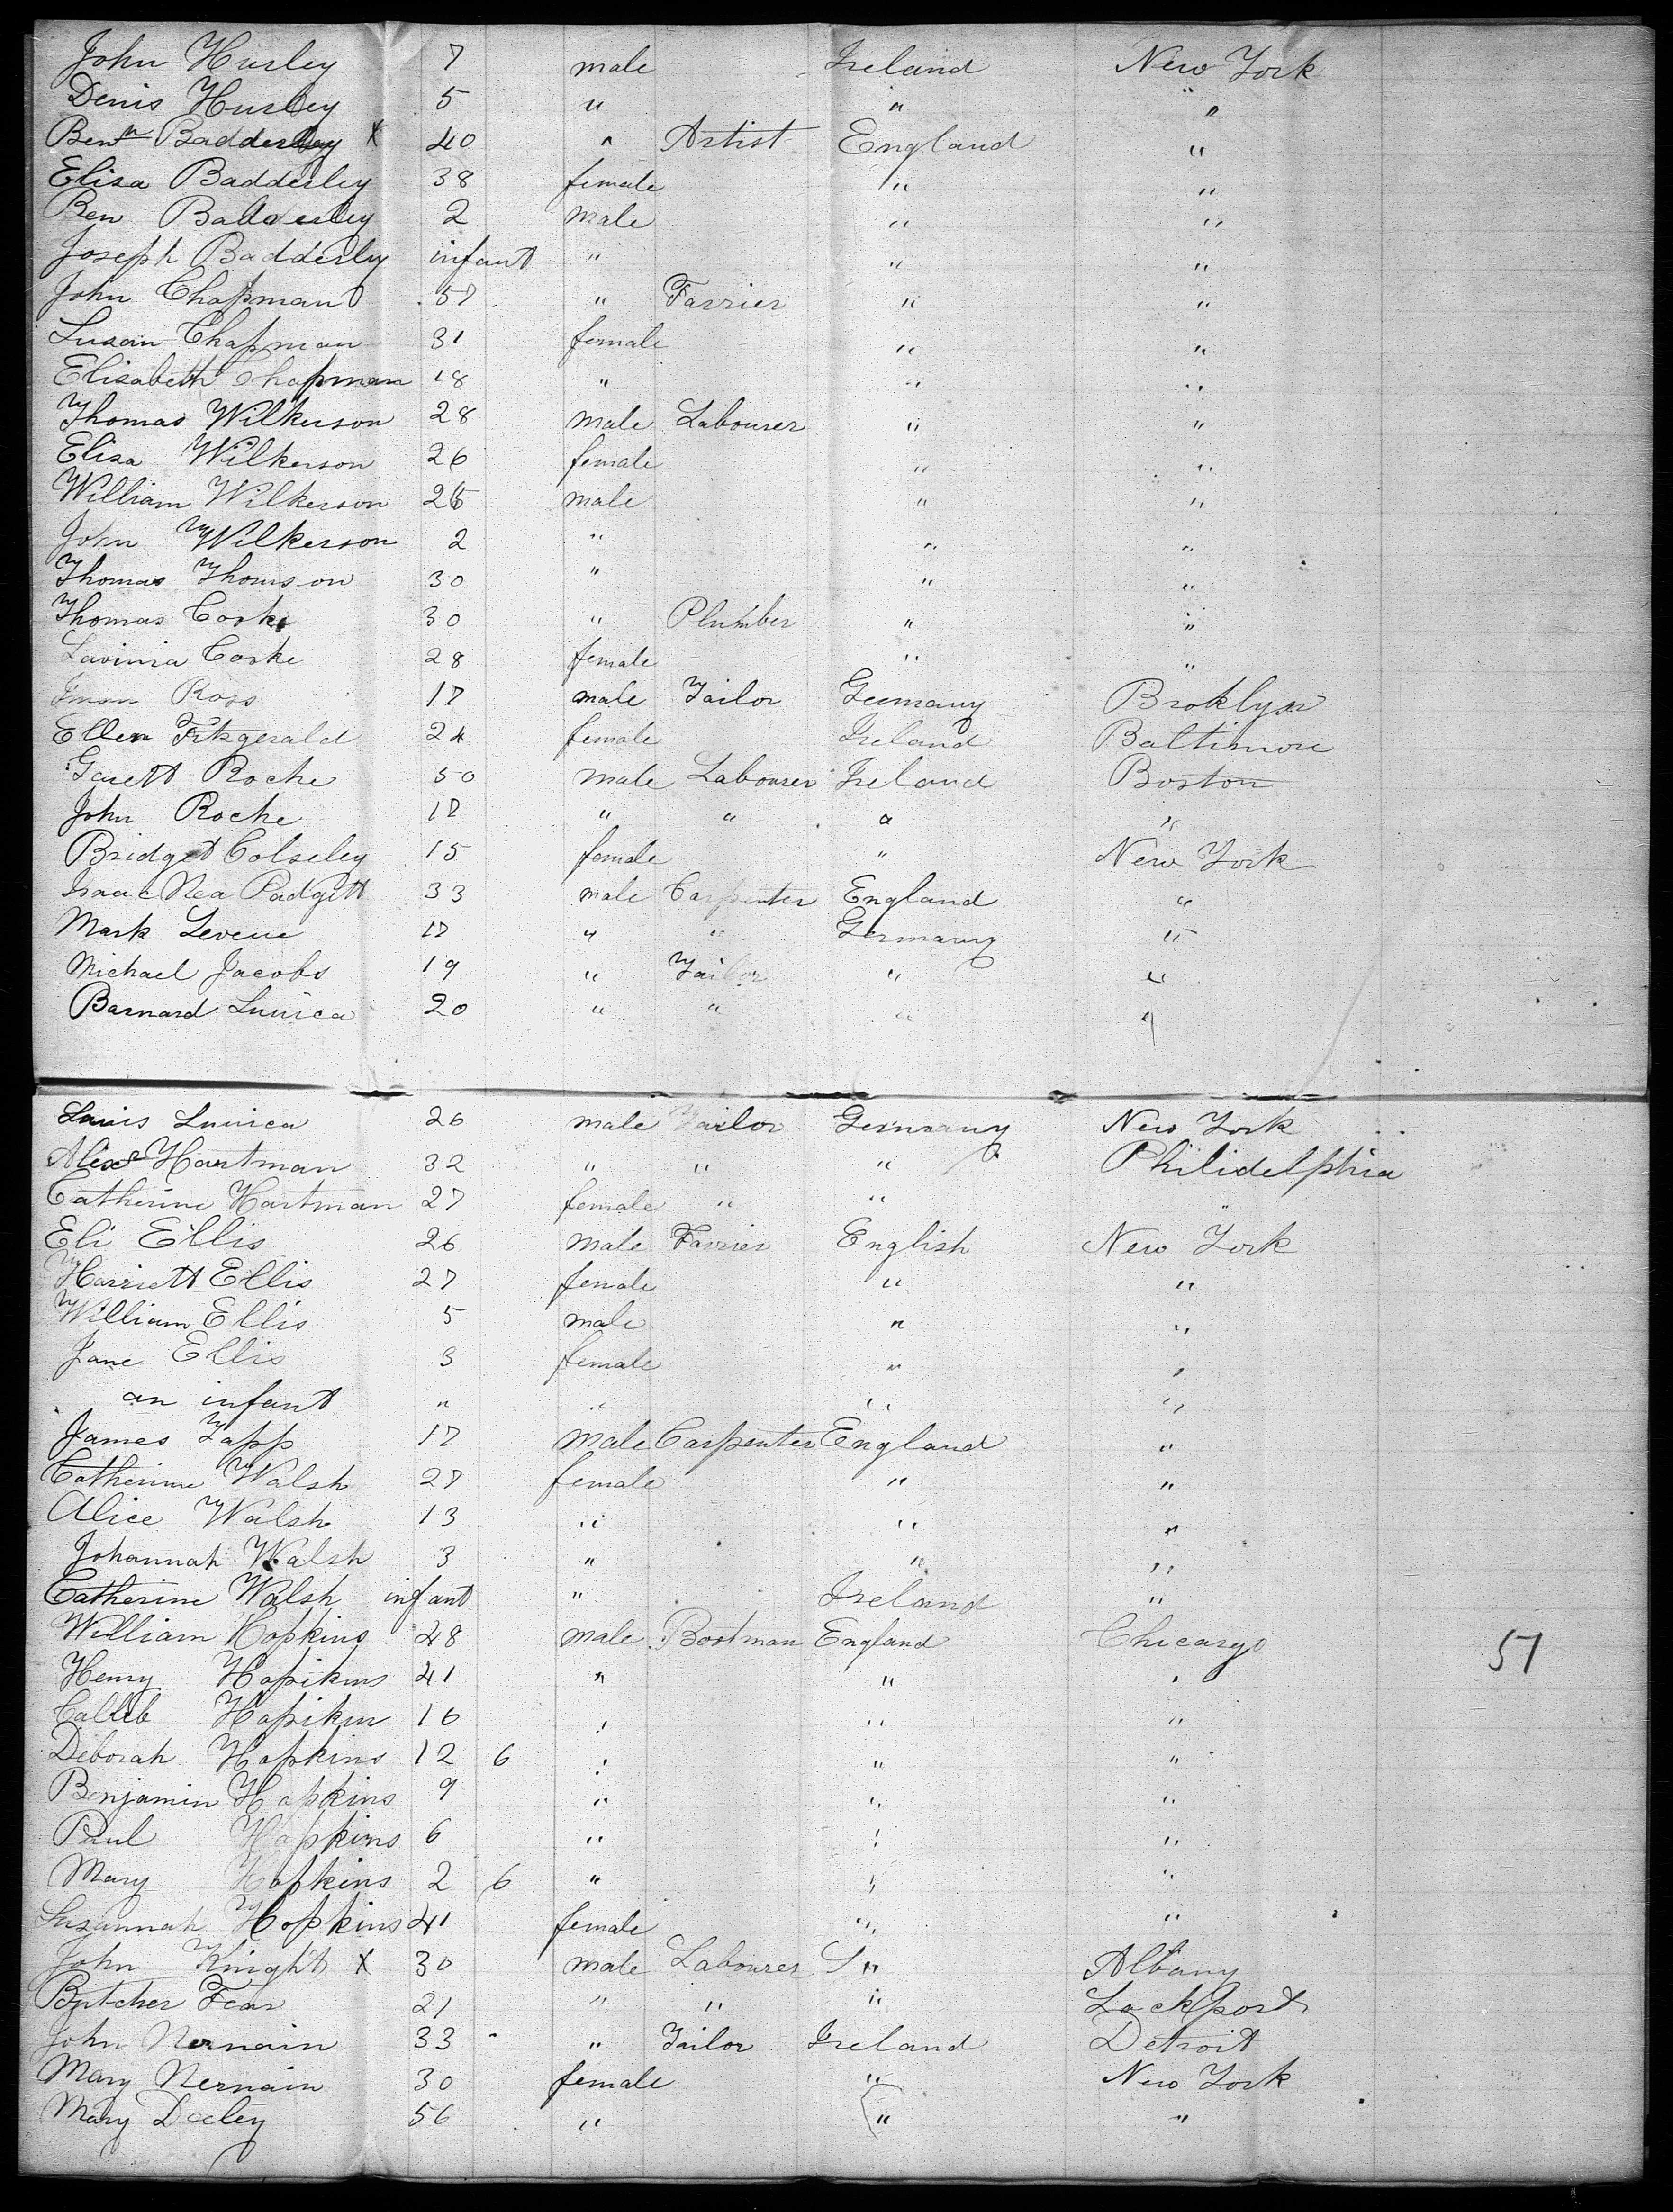 John Hurley 7 male Ireland New York
Denis Hurley 5 " " "
Benn Badderley X 40 " Artist England "
Elisa Badderley 38 female " "
Ben Badderley 2 male " "
Joseph Badderley infant " " "
John Chapman 57 " Farrier " "
Susan Chapman 31 female " "
Elisabeth Chapman 18 " " "
Thomas Wilkerson 28 male Labourer " "
Elisa Wilkerson 26 female " "
William Wilkerson 26 male " "
John Wilkerson 2 " " "
Thomas Thomson 30 " " "
Thomas Corke 30 " Plumber " "
Lavinia Corke 28 female " "
Ross 17 male Tailor Germany Broklyn
Ellen Fitzgerald 24 female Ireland Baltimore
Garett Roche 50 male Labourer Ireland Boston
John Roche 17 " " " "
Bridget Colseley 15 female " New York
Isaac Nea Padgett 33 male Carpenter England "
Mark Levene 17 " " Germany "
Michael Jacobs 19 " Tailor " "
Barnard Luuica 20 " " " "
Louis Luuica 26 male Tailor Germany New York
Alexr Hartman 32 " " " Philidelphia
Catherine Hartman 27 female " " "
Eli Ellis 26 male Farrier English New York
Harriett Ellis 27 female " "
William Ellis 5 male " "
Jane Ellis 3 female " "
an infant " " " "
James Tapp 17 male Carpenter England "
Catherine Walsh 27 female " "
Alice Walsh 13 " " "
Johannah Walsh 3 " " "
Catherine Walsh infant " Ireland "
William Hopkins 48 male Bootman England Chicargo 51
Henry Hopikins 41 " " "
Calleb Hopikin 16 " " "
Deborah Hopkins 12 6 " " "
Benjamin Hopkins 9 " " "
Paul Hopkins 6 " " "
Mary Hopkins 2 6 " " "
Susannah Hopkins 41 female " "
John Knight X 30 male Labourer " Albany
Butcher Fear 21 " " " Lockport
John Nernain 33 " Tailor Ireland Detroit
Mary Nernain 30 female " New York
Mary Dooley 56 " " "